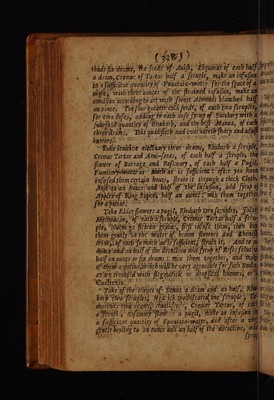 ( 328 )
rinds six drams, the seeds of Anise, Liquorat of each half
a dram, Cremor of Tartar half a scruple, make an infusion
in a sufficient quantity of Fountain-water for the space of a
night, with three ounces of the strained infusion, make an
emulsion according to art with sweet Almonds blanched half
an ounce. The four greater cold seeds, of each two scruples,
for two doses, adding to each dose syrup of Succhory with a
fourfold quantity of Rhubarb, and the best Manna, of each
three drams. This qualifieth and evacuateth sharp and adust
humors.
Take lenitive electuary three drams, Rhubarb a scruple,
Cremor Tartar and Anni-seeds, of each half a scruple, the
flower of Borrage and Rosemary of each half a Pugil,
Fumitory-water as much as is sufficient: after you have
infused them certain hours, strain it through a thick Cloath,
And to an ounce and half of the infusion, add syrup of
Apples of King Sapor, half an ounce, mix them together
for a potion.
Take Elder flowers a pugil, Rhubarb two scruples,
Mechoacan, of each a scruple, Cremor Tartar half a
scruple, them
them gently in the water of broom flowers and Rhenish
wine, of each so much as is sufficient, strain it, And to an
ounce and an half of the decoction add syrup of Roses solutive
half an ounce or six drams: mix them together, and make
of them a potion, which will be very agreeable for such bodies
as are troubled with stigmatick or dropsical humors, or a
Cachexia.
Take of the leaves of Senna a dram and an half, Rhu-
barb two scruples, one scruple, Ta-
marinds two drams, Cremor Tartar, of each
a scruple, Rosemary flowers a pugil, make an infusion in
a sufficient quantity of Fountain-water, and after a very
gentle boyling to an ounce and an half of the decoction, add